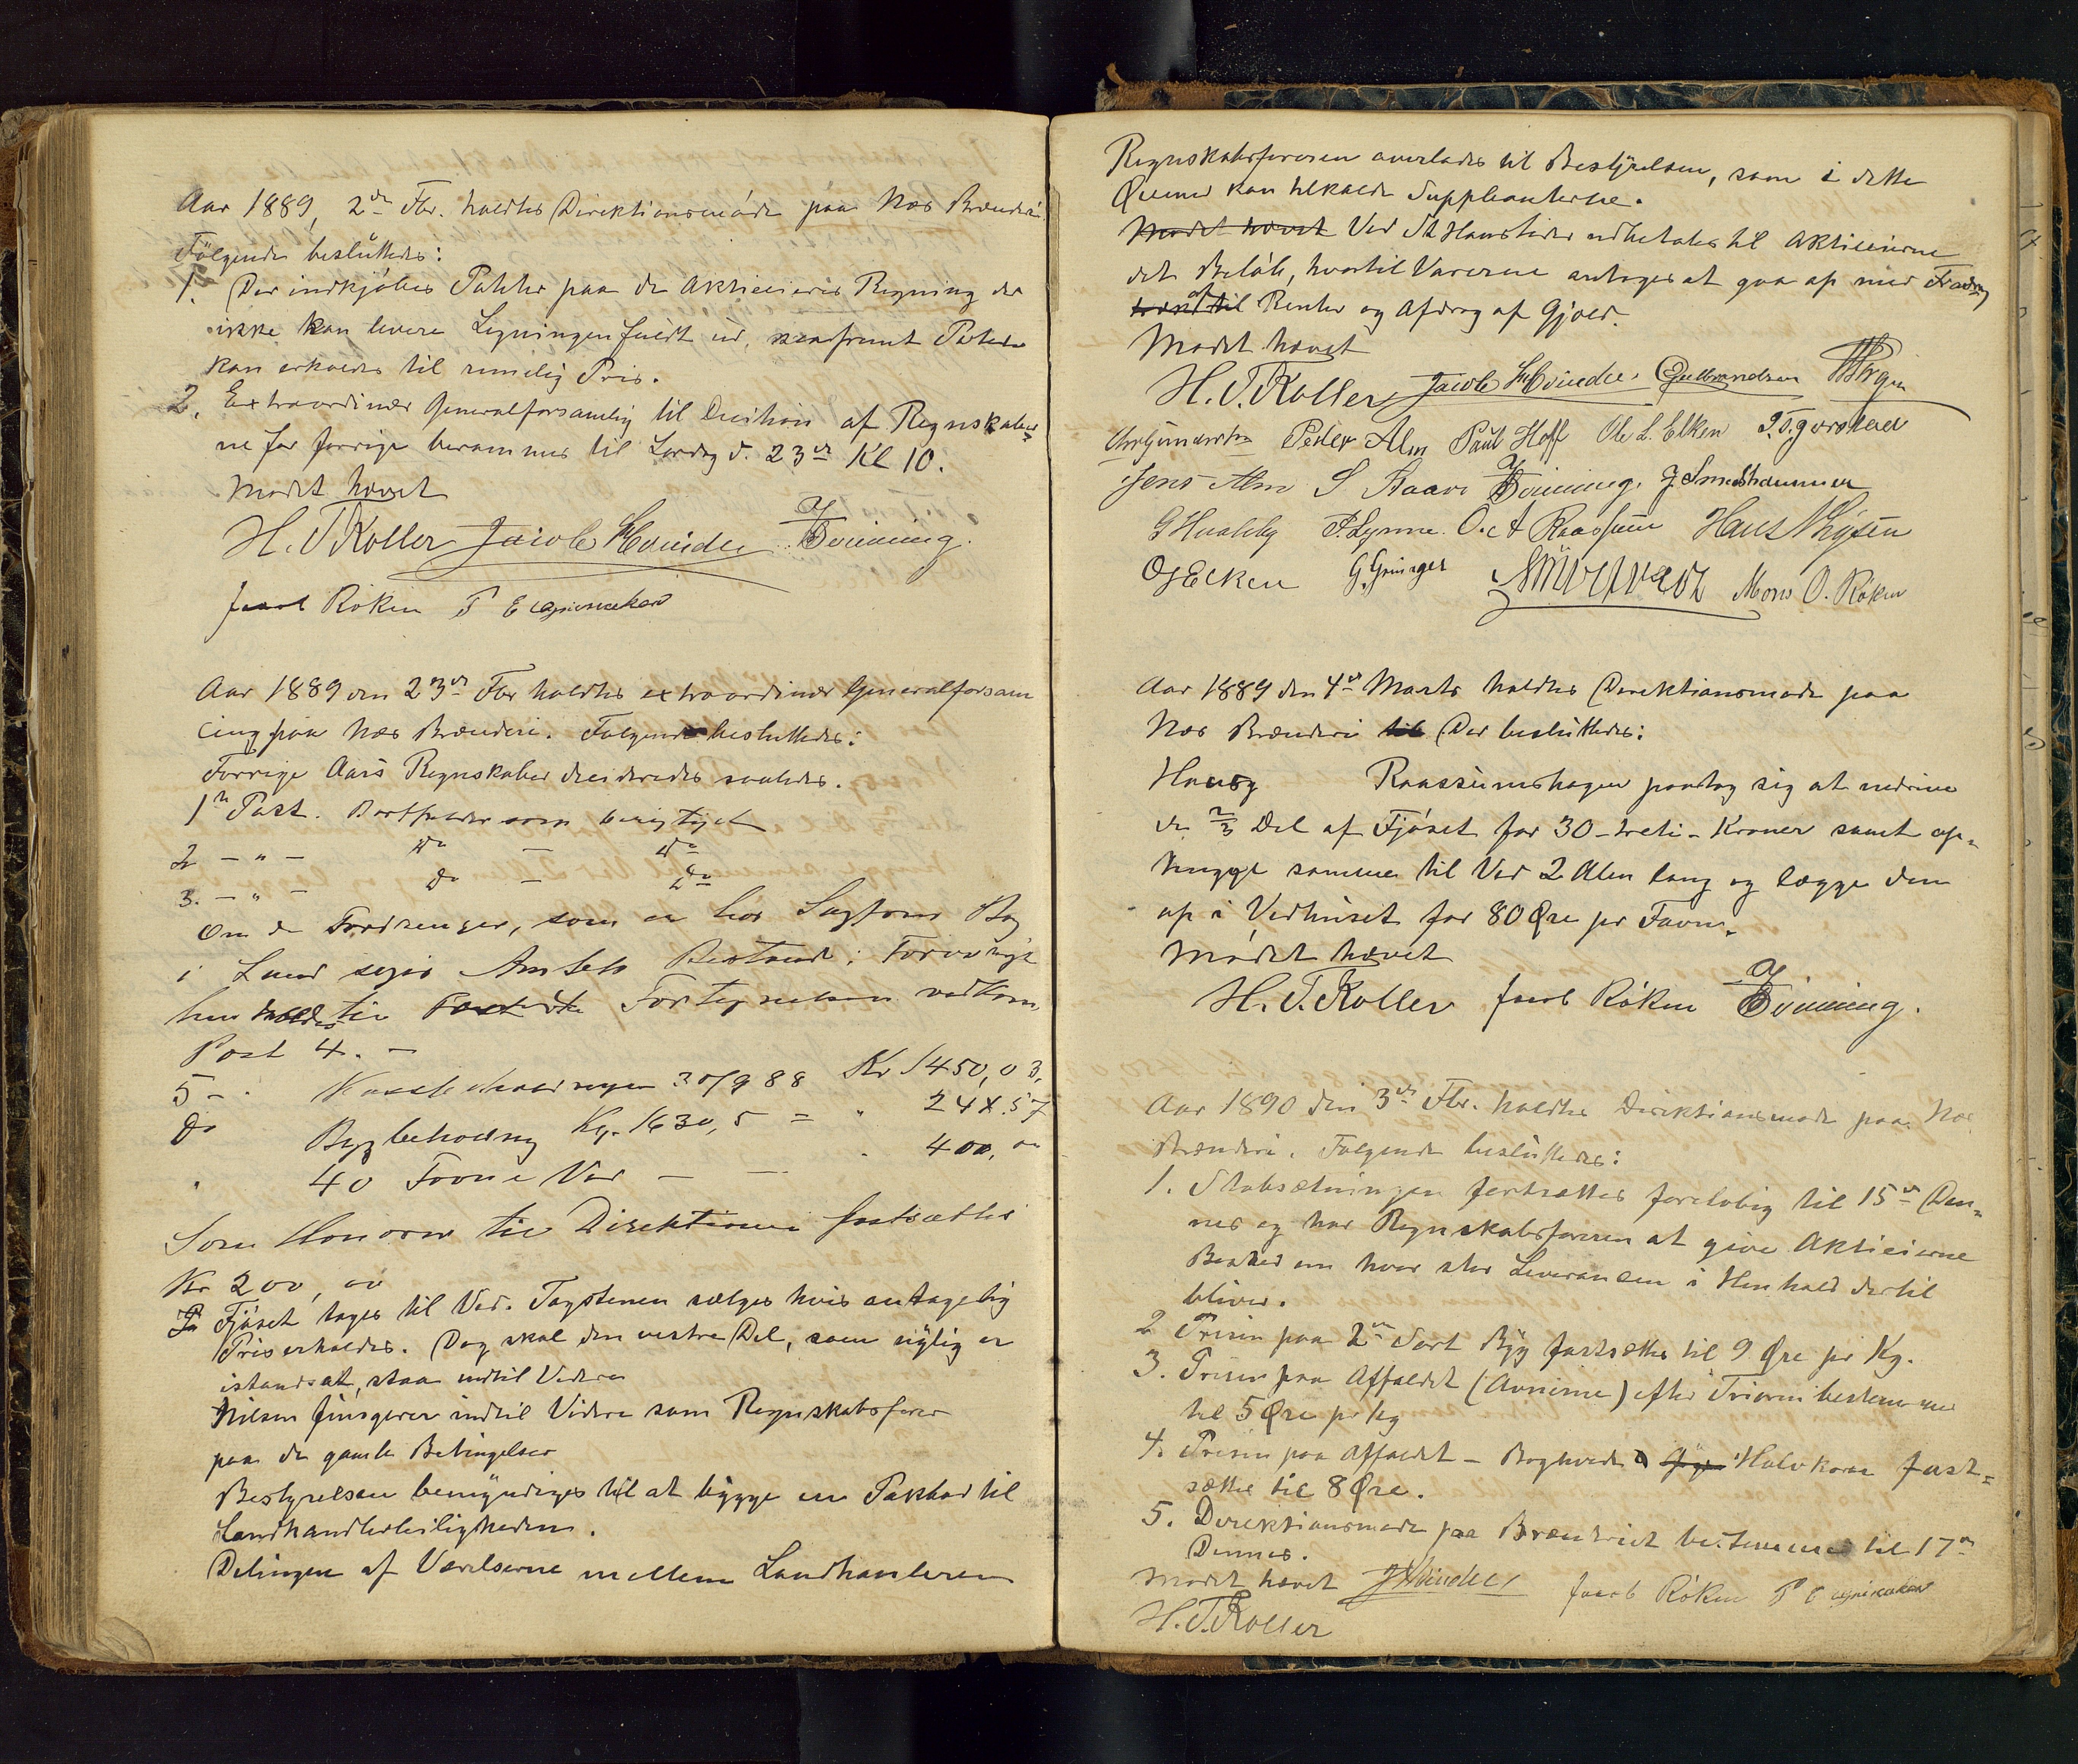 Aar 1889, 2den Fbr. holdtes Direktionsmøde paa Næs Brænderi
Følgende besluttedes:
1. Der indkjøbes Poteter paa de Aktieeieres Regning der
ikke kan levere Ligningen fuldt ud, saafremt Poteter
kan erholdes til rimelig Pris.
2. Extraordinær Generalforsamlig til Decision af Regnskaber
ne for forrige berammes til Lørdag d. 23de Kl 10.
Mødet hævet
H. T. Koller Jacob Hveinden
Jacob Røken P E
Aar 1889 den 23de Fbr holdtes extraordinær Generalforsam
ling paa Næs Brænderi. Følgende besluttedes:
Forrige Aars Regnskaber desideredes saaledes.
1te Post. Bortfalder som berigtiget
2 - " - Do - Do
3. - " - Do - Do
Om de Fordringer, som er hos Sagfører
i Lund søges Amtets Bistand; Forøvrigt
henholdes til Fortegnelsen vedkom.
Post 4. -
5 - . Kassebeholdningen 30/9 88 Kr 1450,03,
Do Bygbeholdning Kg. 1630,5 = " 244.57
" 40 Favne Ved - - . 400,00
Som Honorar til Direktionen fastsættes
Kr 200,00
Fjøset tages til Ved. Tagstenen sælges hvis antagelig
Pris erholdes. Dog skal den vestre Del, som nylig er
istandsat, staa indtil Videre
Nilsen fungerer indtil Videre som Regnskabsfører
paa de gamle Betingelser
Bestyrelsen bemyndiges til at bygge en Pakbod til
Landhandlerleiligheden.
Delingen af Værelserne mellem Landhandleren
Regnskabsføreren overlades til Bestyrelsen, som i dette
Øiemed kan tilkalde Suppleanterne.
Mødet hævet Ved St Hanstider udbetales til Aktieeierne
det Beløb, hvortil Varerne antages at gaa op med Fradrag
af til Renter og Afdrag af Gjæld.
Mødet hævet
H. T. Koller Jacob Hveinden Gulbrandsen
Chr Gundersen Peder Alm Paul Hoff Ole L. Elken
Jens Alm S Staari J Smedshammer
P. Lynne. O. A Raassum Hans Thysen
O J Elken Mons O. Røken
Aar 1889 den 4de Marts holdtes Direktionsmøde paa
Næs Brænderi til Der besluttedes:
Raassumshagen paatog sig at nedrive
de 2/3 Del af Fjøset for 30 - treti - Kroner samt op-
hugge samme til Ved 2 Alen lang og lægge den
op i Vedhuset for 80 Øre pr Favn.
Mødet hævet
H. T. Koller Jacob Røken
Aar 1890 den 3de Fbr. holdtes Direktionsmøde paa Næs
Brænderi. Følgende besluttedes:
1. Støbsætningen fortsættes foreløbig til 15de Den-
nes og har Regnskabsføreren at give Aktieeierne
Besked om hvor stor Leverancen i Henhold dertil
bliver.
2 Prisen paa 2den Sort Byg fastsættes til 9 Øre pr Kg.
3. Prisen paa Affaldet (Avnerne) efter Trieren bestemmes
til 5 Øre pr kg
4. Prisen paa Affaldet - Boghvede Halvkorn fast-
sættes til 8 Øre.
5. Direktionsmøde paa Brænderiet bestemmes til 17de
Dennes.
Mødet hævet J Hveinden Jacob Røken P E
H. T. Koller